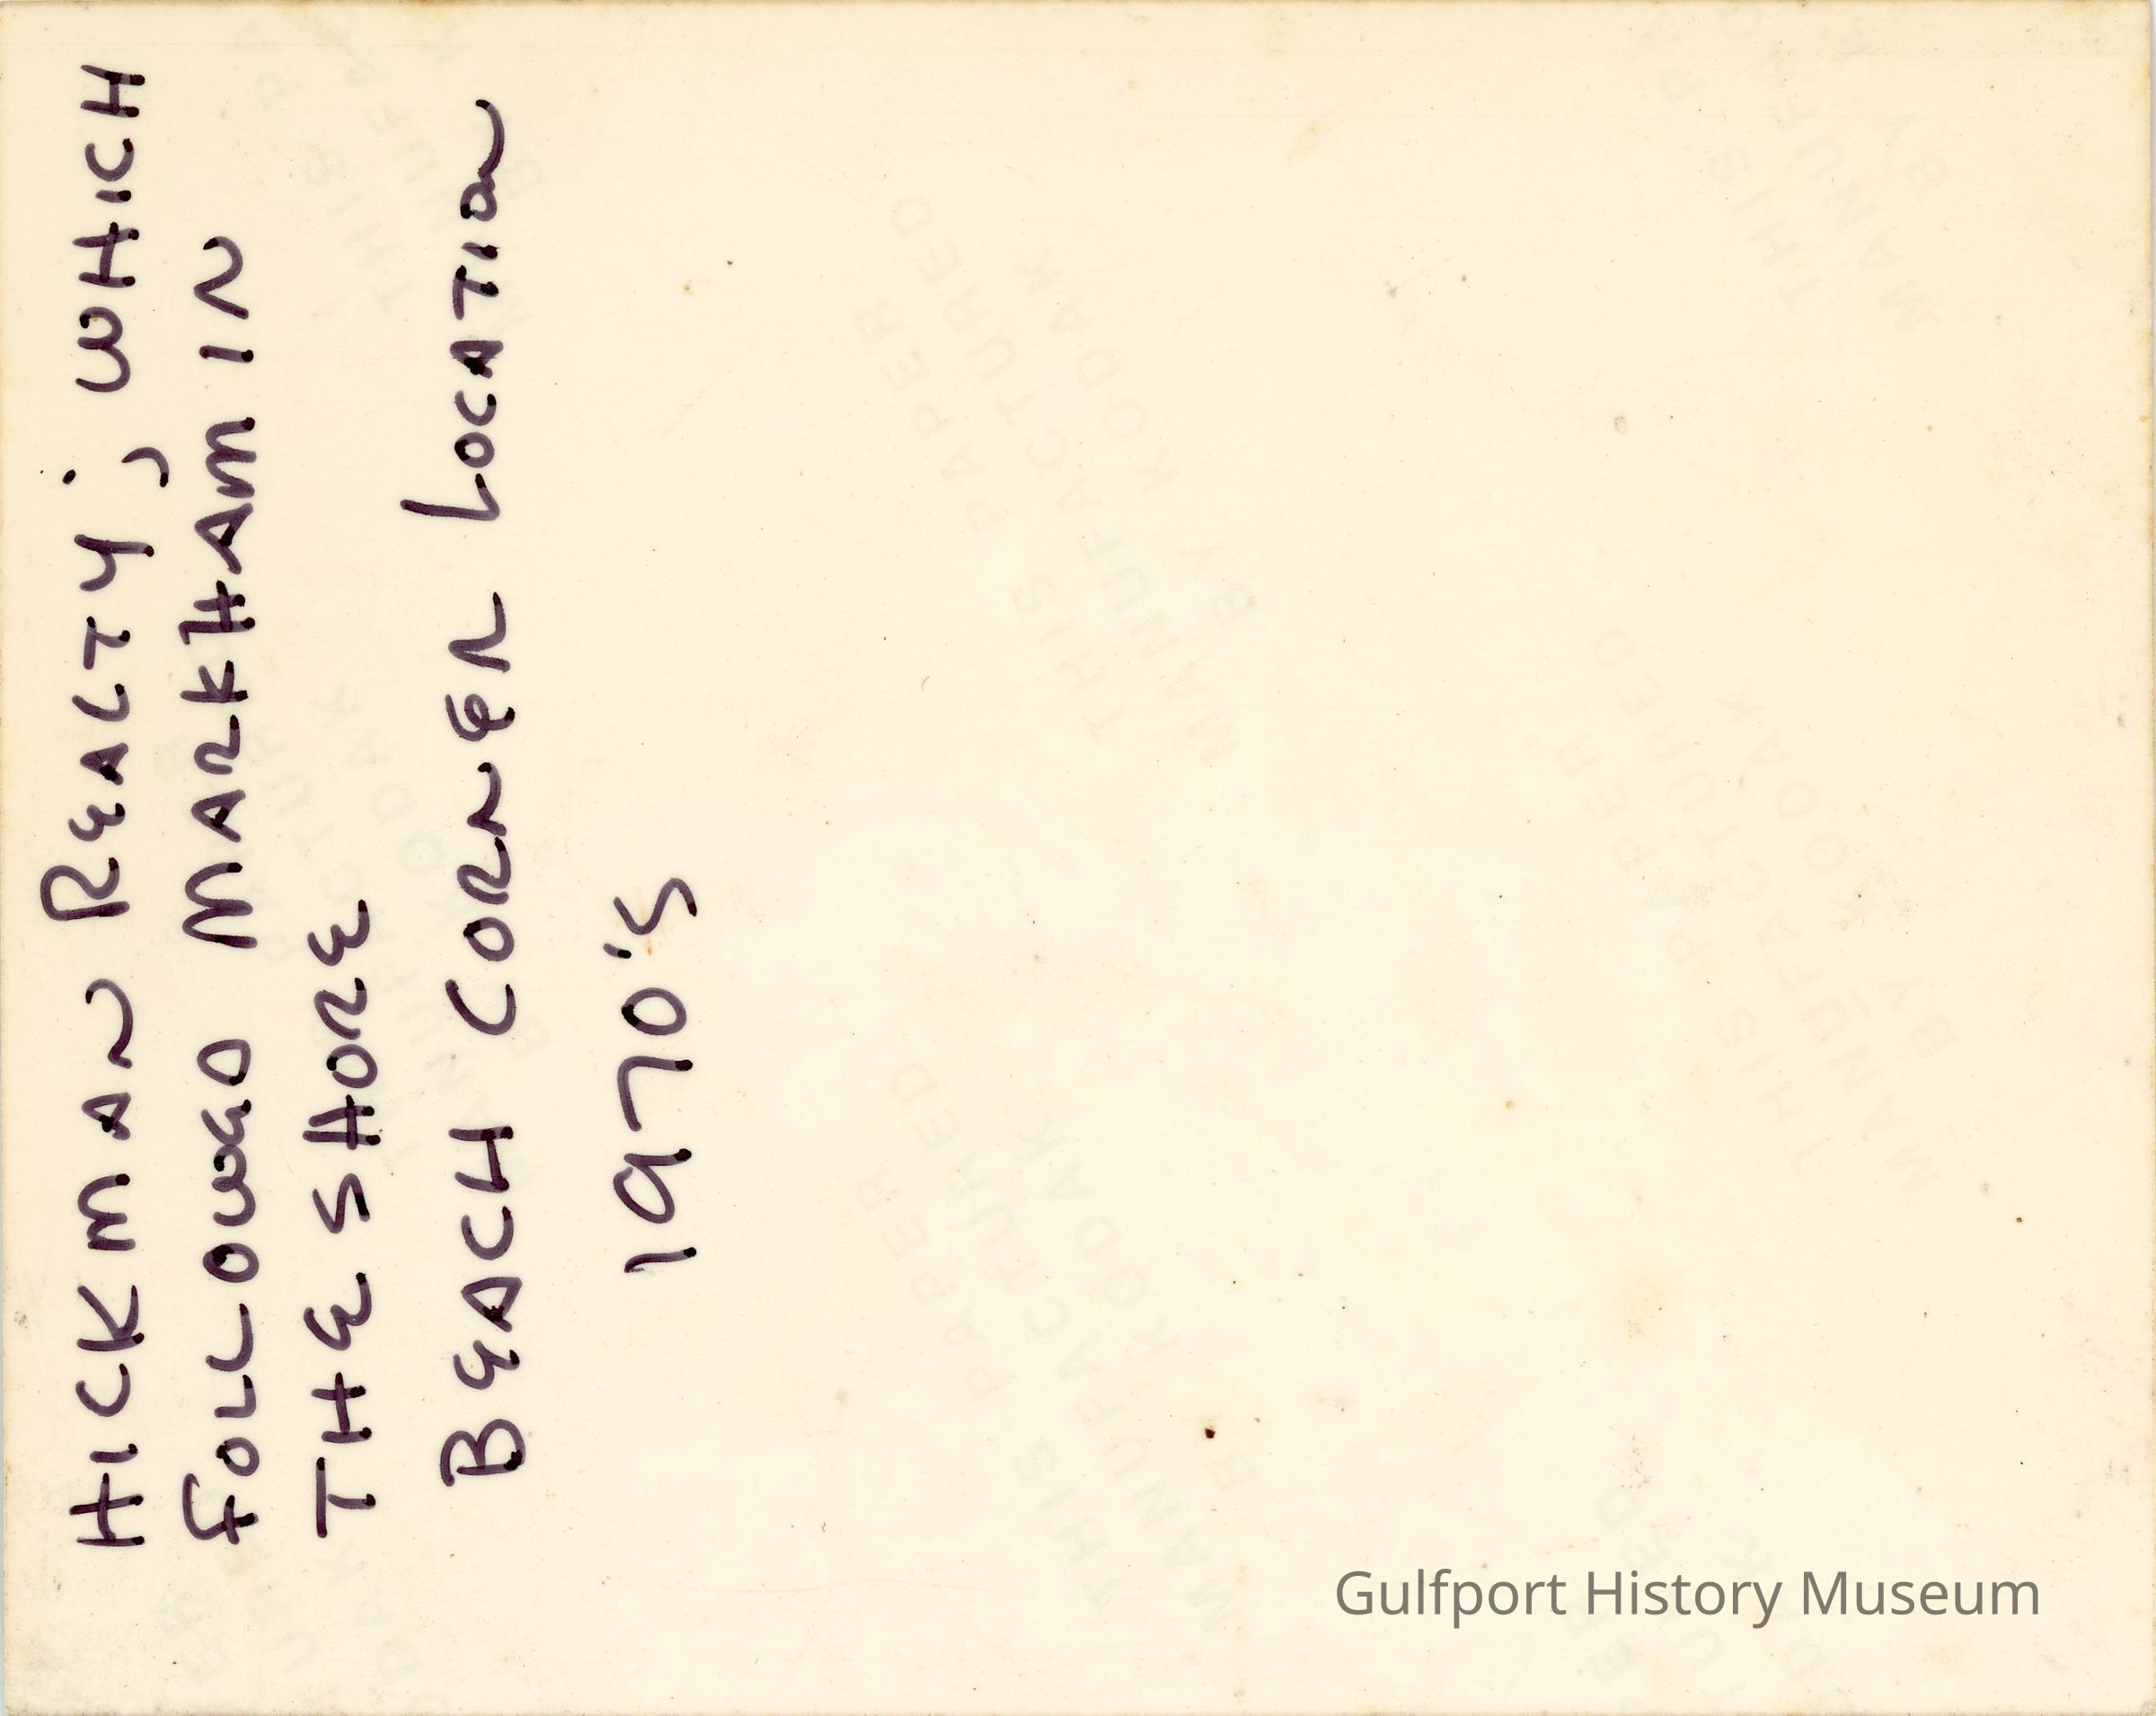 HICKMAN REALTY; WHICH
FOLLOWED MARKHAM IN
THE SHORE
BEACH CORNER LOCATION
1970's
THIS PAPER
MANUFACTURED
BY KODAK
THIS PAPER
MANUFACTURED
BY KODAK
THIS PAPER
MANUFACTURED
BY KODAK
Gulfport History Museum